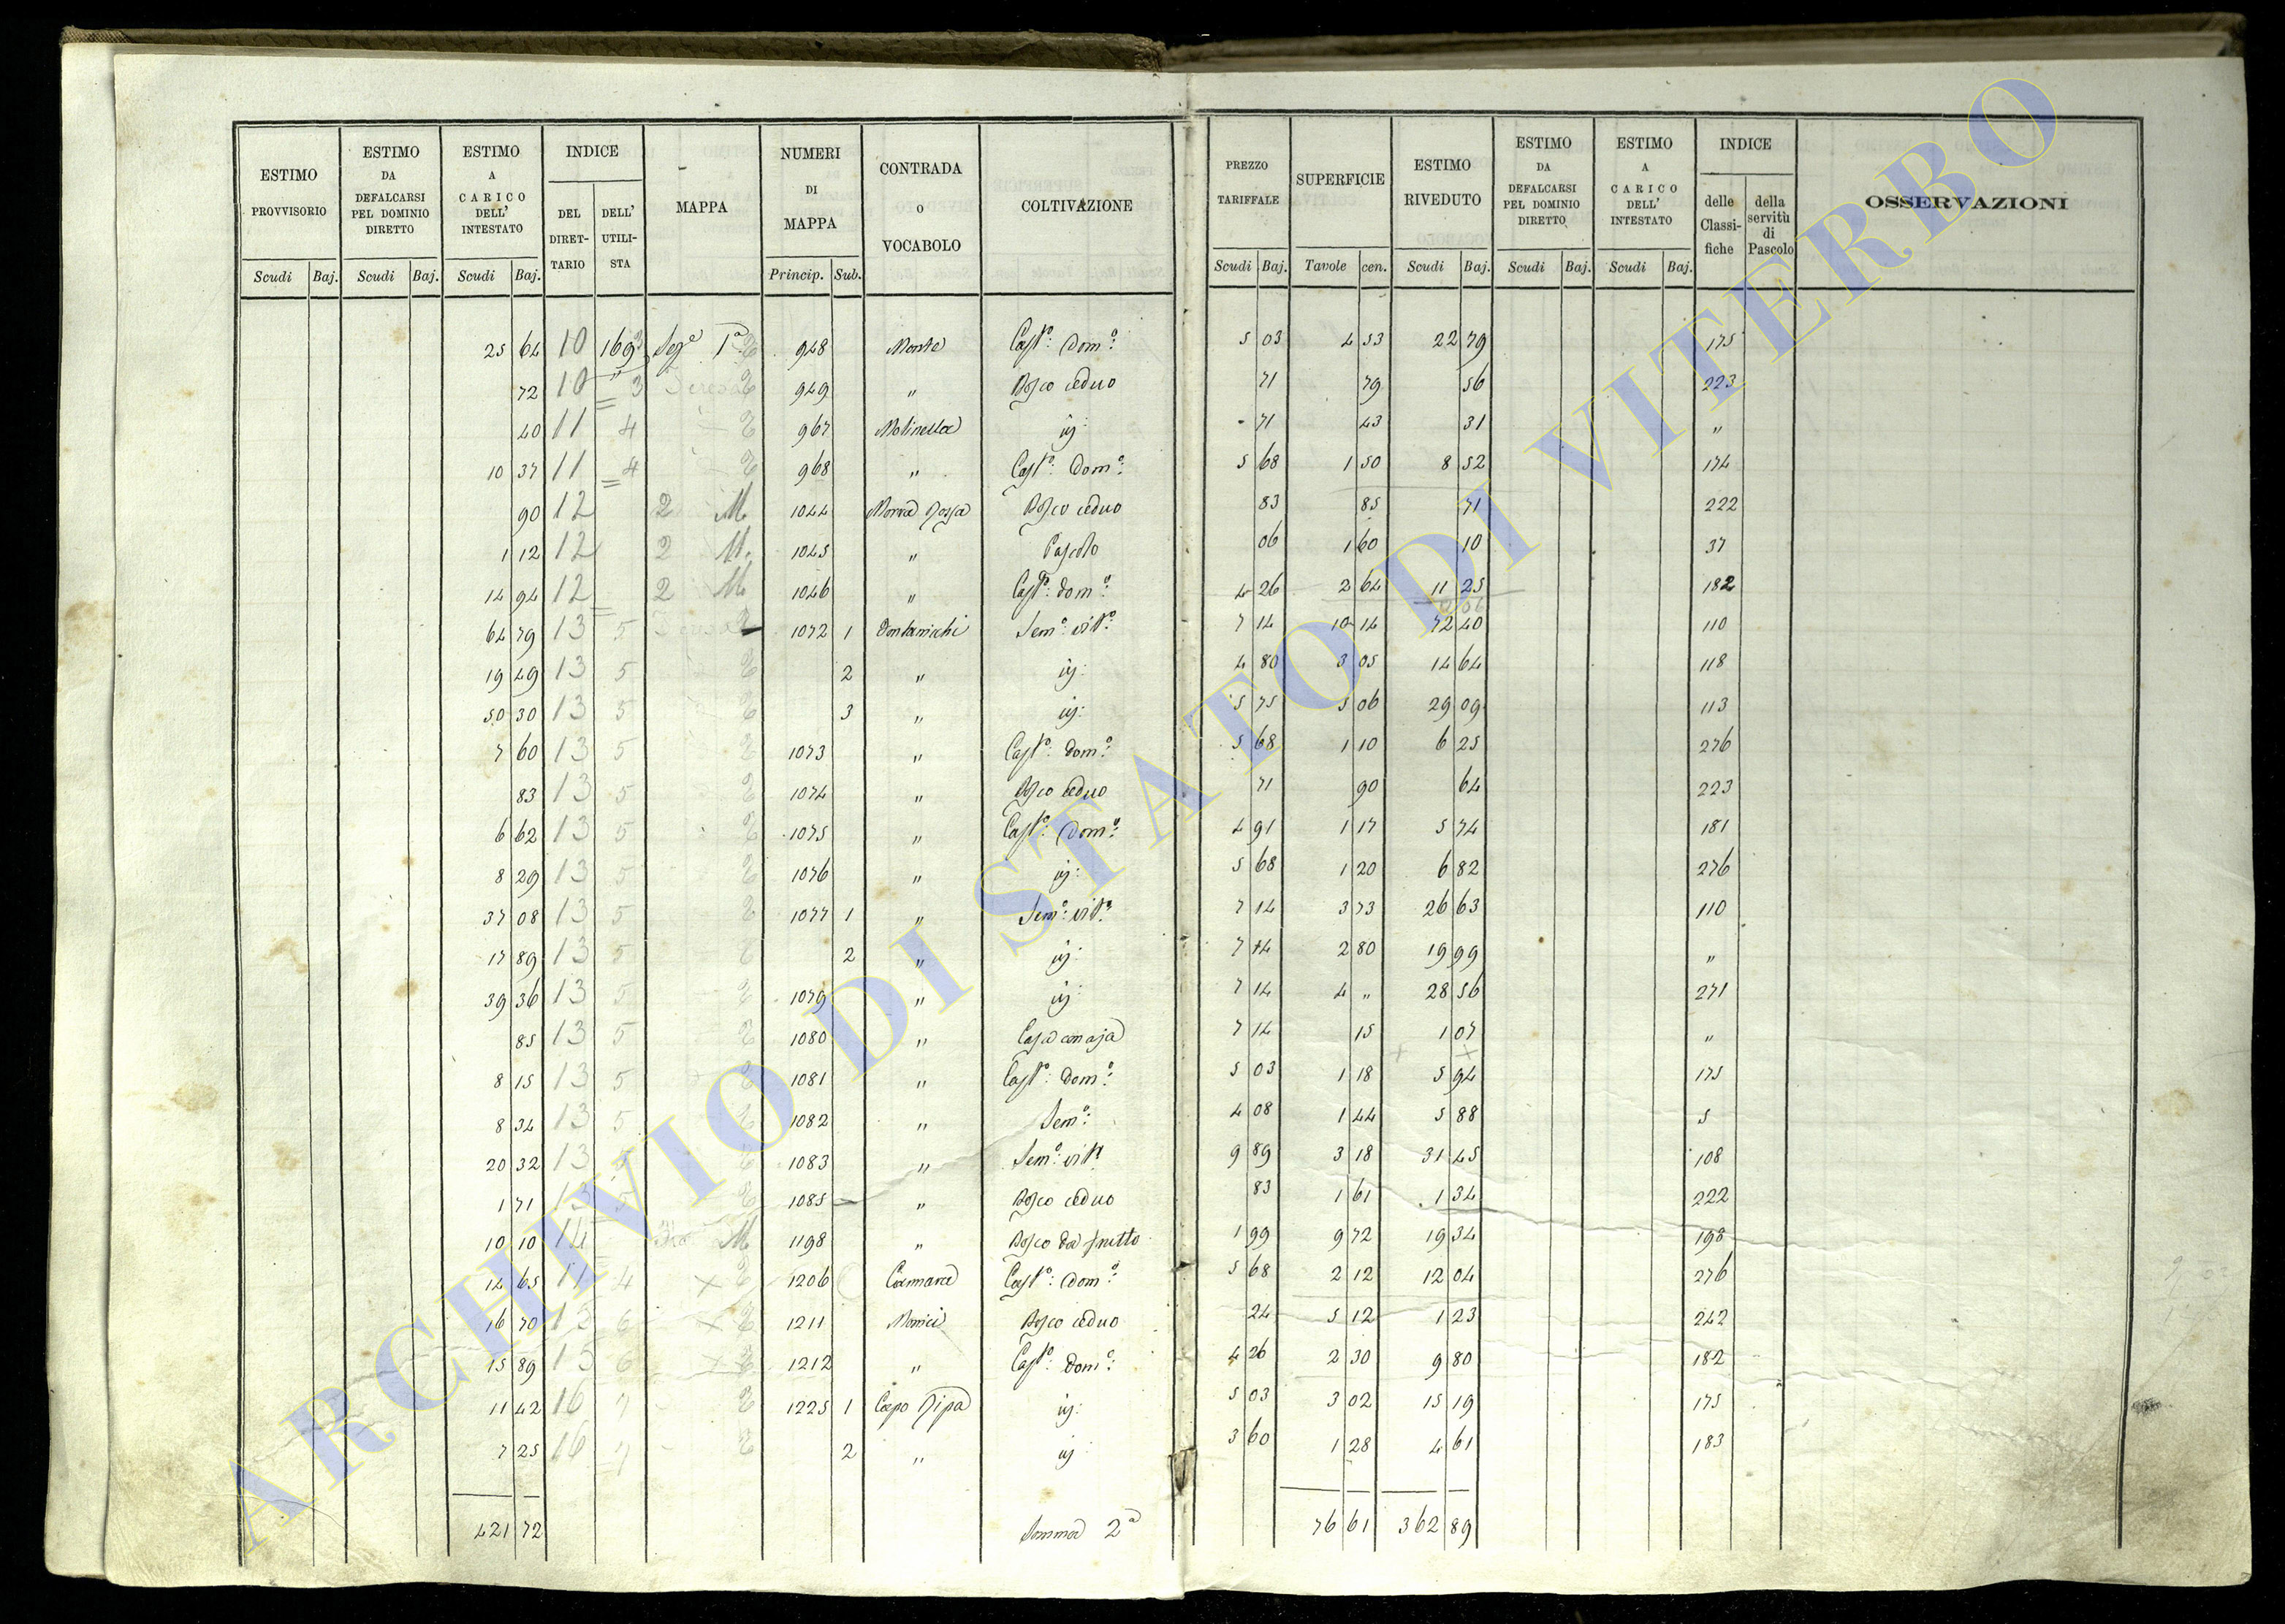 ESTIMO PROVVISORIO | ESTIMO DA DEFALCARSI PEL DOMINIO DIRETTO | ESTIMO A CARICO DELL' INTESTATO | INDICE | MAPPA | NUMERI DI MAPPA | CONTRADA O VOCABOLO | COLTIVAZIONE | PREZZO TARIFFALE | SUPERFICIE | ESTIMO RIVEDUTO | ESTIMO DA DEFALCARSI PEL DOMINIO DIRETTO | ESTIMO A CARICO DELL' INTESTATO | INDICE | OSSERVAZIONI
DEL DIRETTARIO | DELL' UTILISTA | delle Classifiche | della servitù di Pascolo
Scudi | Baj. | Scudi | Baj. | Scudi | Baj. | Princip. | Sub. | Scudi | Baj. | Tavole | cen. | Scudi | Baj. | Scudi | Baj. | Scudi | Baj.
25 64 10 169 Seze 1a 948 Monte Casto: Domo: 5 03 4 53 22 79 175
72 10 " 3 Teresa 949 " Bosco ceduo 71 79 56 223
40 11 4 967 Molinella iy: 71 43 31 "
10 37 11 4 968 " Casto: Domo: 5 68 1 50 8 52 174
90 12 2 M 1044 Bosco ceduo 83 85 71 222
1 12 12 2 M. 1045 " Pascolo 06 1 60 10 37
14 94 12 2 M 1046 " Casto: domo: 4 26 2 64 11 25 182
64 79 13 5 1072 1 Semo: vito: 7 14 10 14 72 40 110
19 49 13 5 2 " iy: 4 80 3 05 14 64 118
50 30 13 5 3 " iy: 5 75 5 06 29 09 113
7 60 13 5 1073 " Casto: Domo: 5 68 1 10 6 25 276
83 13 5 1074 " Bosco ceduo 71 90 64 223
6 62 13 5 1075 " Casto: Domo: 4 91 1 17 5 74 181
8 29 13 5 1076 " iy: 5 68 1 20 6 82 276
37 08 13 5 1077 1 " Semo: vito: 7 14 3 73 26 63 110
17 89 13 5 2 " iy: 7 14 2 80 19 99 "
39 36 13 5 1079 " iy: 7 14 4 " 28 56 271
85 13 5 1080 " Casa con aja 7 14 15 1 07 "
8 15 13 5 1081 " Casto: Domo: 5 03 1 18 5 94 175
8 34 13 5 1082 " Semo: 4 08 1 44 5 88 5
20 32 13 5 1083 " Semo: vito: 9 89 3 18 31 45 108
1 71 13 5 1085 " Bosco ceduo 83 1 61 1 34 222
10 10 14 M 1198 " Bosco da frutto 1 99 9 72 19 34 198
14 65 11 4 x 1206 Casto: Domo: 5 68 2 12 12 04 276
16 70 15 6 x 1211 Bosco ceduo 24 5 12 1 23 242
15 89 15 6 x 1212 " Casto: Domo: 4 26 2 30 9 80 182
11 42 16 7 1225 1 Capo Ripa iy: 5 03 3 02 15 19 175
7 25 16 7 2 " iy 3 60 1 28 4 61 183
421 72 Somma 2a 76 61 362 89
ARCHIVIO DI STATO DI VITERBO